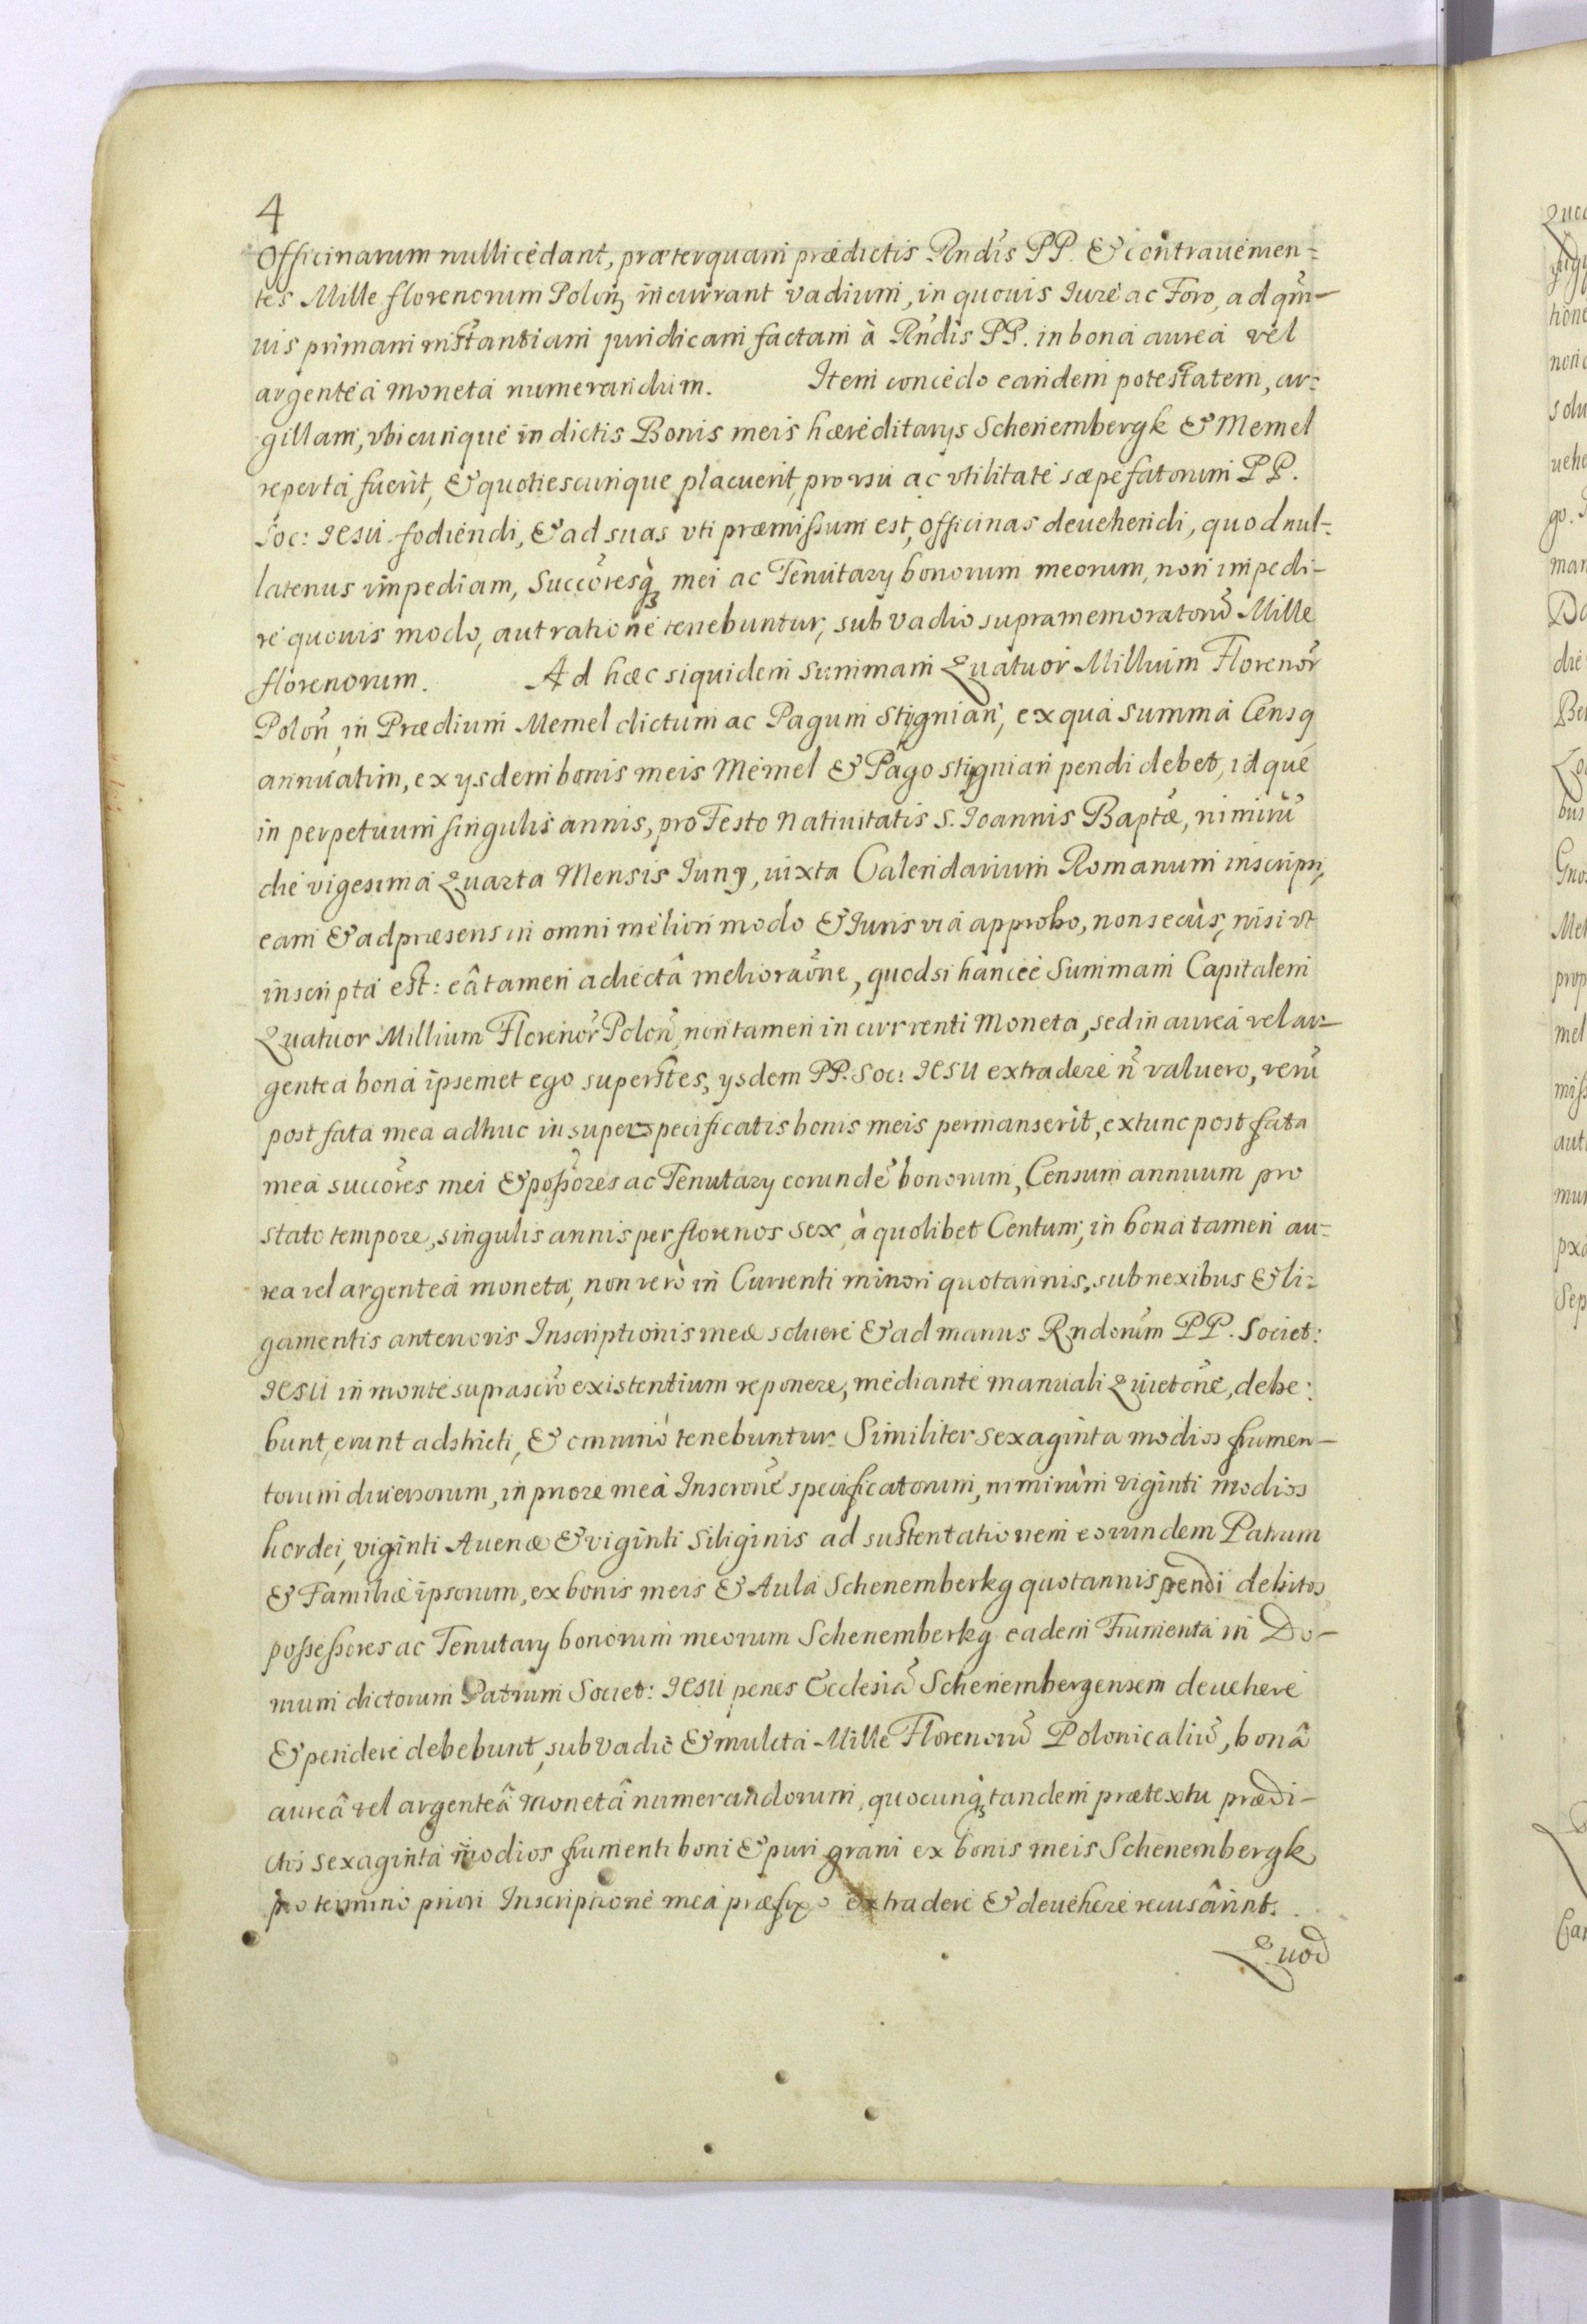 4
Officinarum nulli cedant, præterquam prædictis Rndis PP. & contrauenien=
tes Mille florenorum Polon, incurrant vadium, in quouis Iure ac Foro, ad qūn-
uis primam instantiam juridicam factam à Rndis PP. in bona aurea vel
argentea moneta numerandum. Item concedo eandem potestatem, ar=
gillam, vbicunque in dictis Bonis meis hæreditarys Schenembergk & Memel
reperta fuerit, & quotiescunque placuerit, pro vsu ac vtilitate sæpefatorum PP.
Soc: IESU fodiendi, & ad suas vti præmissum est, officinas deuehendi, quod nul=
latenus impediam, Succoresq3 mei ac Tenutary bonorum meorum, non impedi-
re quouis modo, aut ratione tenebuntur, sub vadio supramemoratorū Mille
florenorum. Ad hæc siquidem summam Quatuor Millium Florenor
Polon, in Prædium Memel dictum ac Pagum Stignian, ex qua summa Censq
annuatim, ex ysdem bonis meis Memel & Pago stignian pendi debet, idque
in perpetuum singulis annis, pro Festo Natiuitatis S. Ioannis Baptæ, nimirū
die vigesima Quarta Mensis Iuny, iuxta Calendarium Romanum inscripsi,
eam & ad præsens in omni meliori modo & Iuris via approbo, non secùs, nisi vt
inscripta est: eâ tamen adiectâ melioraōne, quod si hancce Summam Capitalem
Quatuor Millium Florenor Polon, non tamen in currenti Moneta, sed in aurea vel ar-
gentea bona ipsemet ego superstes, ysdem PP. Soc: IESU extradere n̄ valuero, verū
post fata mea adhuc in superspecificatis bonis meis permanserit, extunc post fata
mea succores mei & possores ac Tenutary eorundē bonorum, Censum annuum pro
stato tempore, singulis annis per florenos sex, à quolibet Centum, in bona tamen au=
rea vel argentea moneta, non verò in Currenti minori quotannis, sub nexibus & li=
gamentis anterioris Inscriptionis meæ soluere & ad manus Rndorum PP. Societ:
IESU in monte suprascrō existentium reponere, mediante manuali Quietōne, debe:
bunt, erunt adstricti, & omnino tenebuntur. Similiter sexaginta modios frumen-
torum diuersorum, in priore mea Inscrone specificatorum, nimirùm viginti modios
hordei, viginti Auenæ & viginti Siliginis ad sustentationem eorundem Patrum
& Familiæ ipsorum, ex bonis meis & Aula Schenemberkg quotannis pendi debitos,
possessores ac Tenutary bonorum meorum Schenemberkg eadem Frumenta in Do-
mum dictorum Patrum Societ: IESU penes Ecclesiā Schenembergensem deuehere
& pendere debebunt, sub vadio & mulcta Mille Florenorū Polonicaliū, bonâ
aureâ vel argenteâ monetâ numerandorum, quocunq3 tandem prætextu prædi-
ctos sexaginta modios frumenti boni & puri grani ex bonis meis Schenembergk,
pro termino priori Inscriptione mea præfixo extradere & deuehere recusârint.
Quod